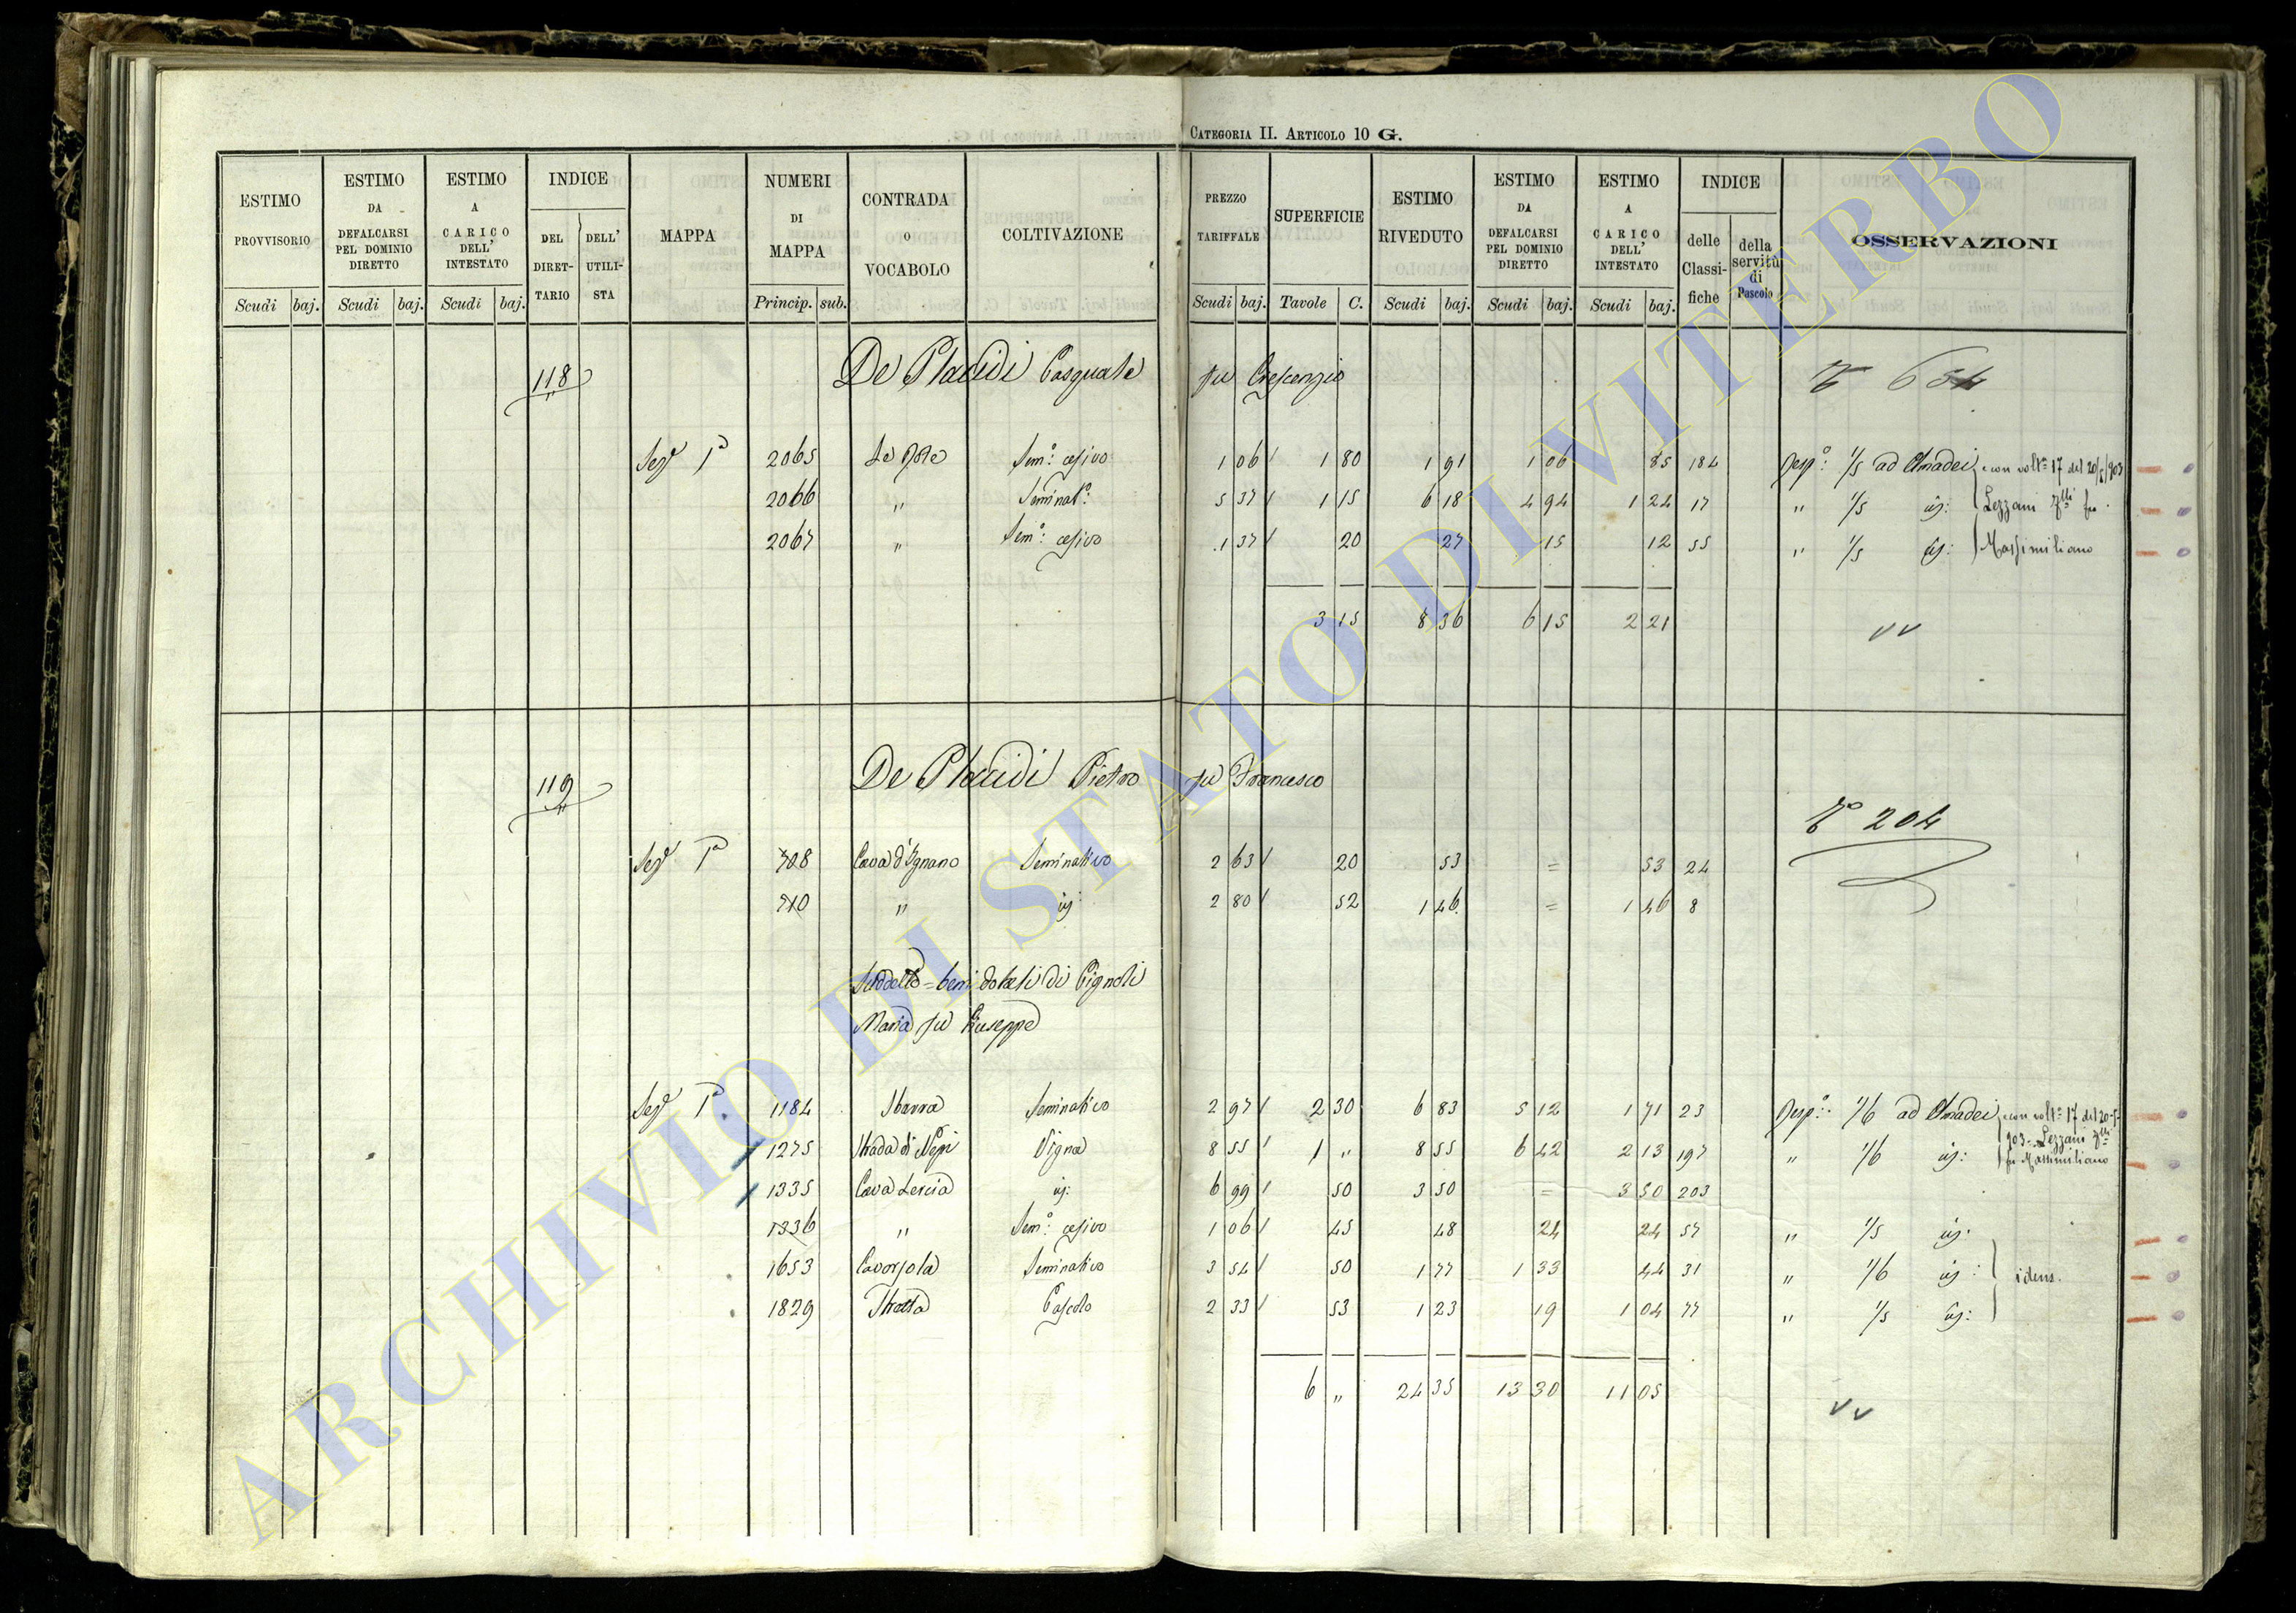 CATEGORIA II. ARTICOLO 10 G.
ESTIMO PROVVISORIO Scudi baj.
ESTIMO DA DEFALCARSI PEL DOMINIO DIRETTO Scudi baj.
ESTIMO A CARICO DELL' INTESTATO Scudi baj.
INDICE DEL DIRET-TARIO DELL' UTILI-STA
MAPPA
NUMERI DI MAPPA Princip. sub.
CONTRADA O VOCABOLO
COLTIVAZIONE
PREZZO TARIFFALE Scudi baj.
SUPERFICIE Tavole C.
ESTIMO RIVEDUTO Scudi baj.
ESTIMO DA DEFALCARSI PEL DOMINIO DIRETTO Scudi baj.
ESTIMO A CARICO DELL' INTESTATO Scudi baj.
INDICE delle Classi-fiche della servitù di Pascolo
OSSERVAZIONI
118 De Placidi Pasquale fu Crescenzio 654
Seze 1a 2065 Sem.o cesivo 1 06 1 80 1 91 1 06 85 184 Desp.o: 1/5 ad Amadei e con volt.a 17 del
2066 " Seminat.o 5 37 1 15 6 18 4 94 1 24 17 " 1/5 id: Lezzani flli fu
2067 " Sem.o cesivo 1 37 20 27 15 12 55 " 1/5 id: Massimiliano
3 15 8 36 6 15 2 21
119 De Placidi Pietro fu Francesco
204
Seze 1a 708 Cava d'Ignano Seminativo 2 63 20 53 = 53 24
710 " id 2 80 52 1 46 = 1 46 8
Suddetto = beni dotali di Pignoli
Maria fu Giuseppe
Seze 1a 1184 Sbarra Seminativo 2 97 2 30 6 83 5 12 1 71 23 Desp.o: 1/6 ad Amadei e con volt.a 17 del 20-5-
1275 Strada di Nepi Vigna 8 55 1 " 8 55 6 42 2 13 197 " 1/6 id: 903 - Lezzani flli fu Massimiliano
1335 Cava Lescia id: 6 99 50 3 50 = 3 50 203
1336 " Sem.o cesivo 1 06 45 48 24 24 57 " 1/5 id.
1653 Cavorjola Seminativo 3 54 50 1 77 1 33 44 31 " 1/6 id: idem.
1829 Stretta Pascolo 2 33 53 1 23 19 1 04 77 " 1/5 id:
6 " 24 35 13 30 11 05
ARCHIVIO DI STATO DI VITERBO